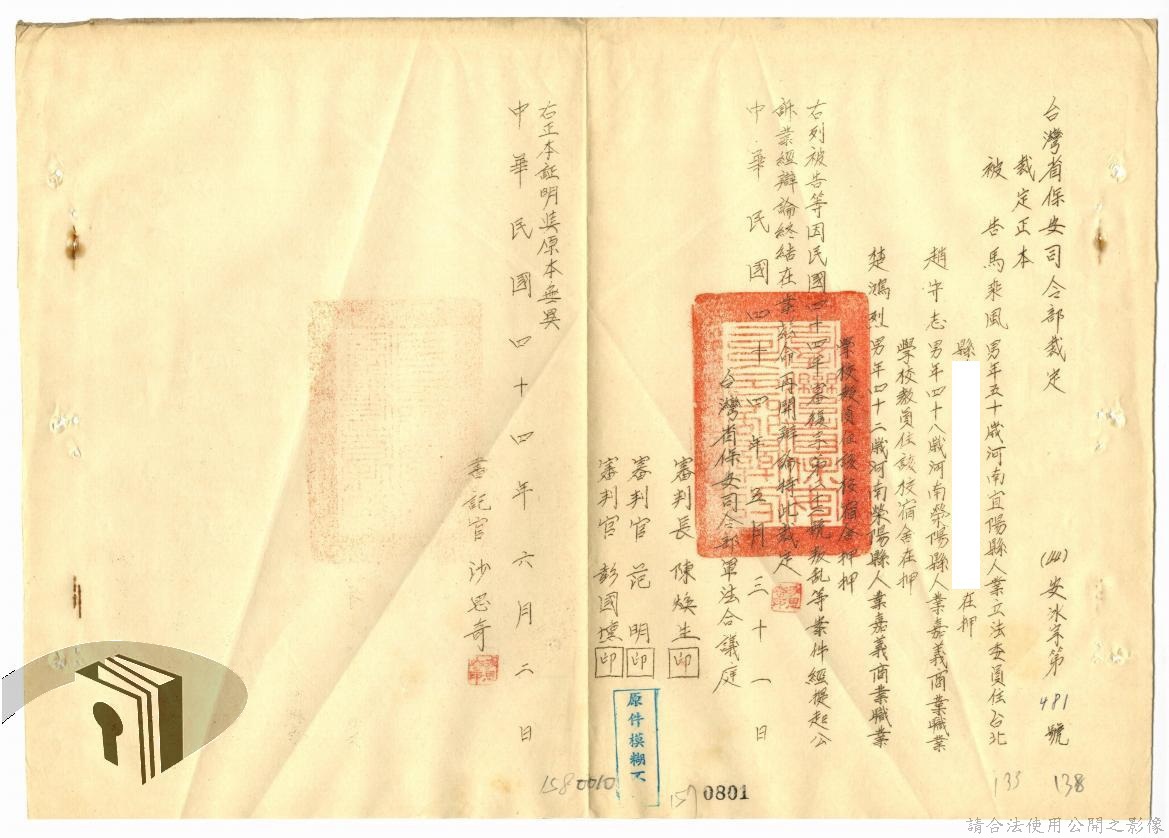 台灣省保安司令部裁定
(44)安水字第481號
裁定正本
被告馬乘風男年五十歲河南宜陽縣人業立法委員住台北
縣
在押
趙守志男年四十八歲河南滎陽縣人業嘉義商業職業
學校教員住該校宿舍在押
楚鴻烈男年四十二歲河南滎陽縣人業嘉義商業職業
學校教員住該校宿舍在押
右列被告等因民國四十四年審復字第十三號叛乱等案件經提起公
訴業經辯論終結在案茲命再開辯論特此裁定
中華民國四十四年五月三十一日
台灣省保安司令部軍法合議庭
審判長 陳煥生 印
審判官 范明 印
審判官 彭國壎 印
右正本証明與原本無異
中華民國四十四年六月二日
書記官 沙思奇
原件模糊不
1580010
157
0801
135
138
請合法使用公開之影像